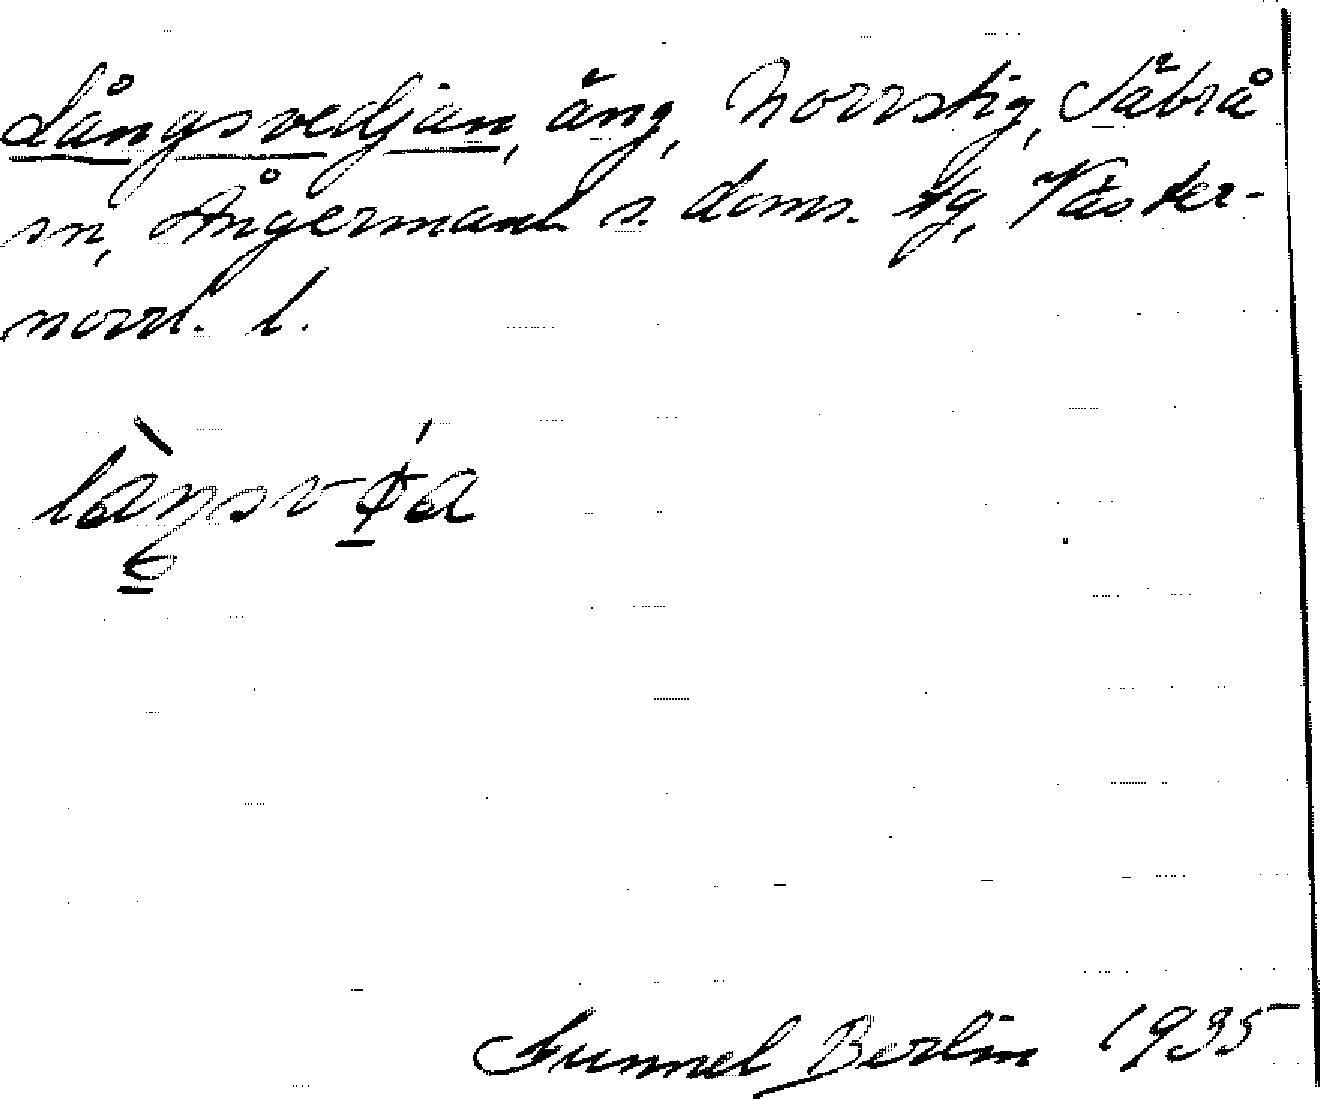 Långsvedjan, äng, Norrstig, Säbrå
sn, Ångermanl. s. doms. tg, Väster-
norrl. l.
Gunnel Berlin 1935